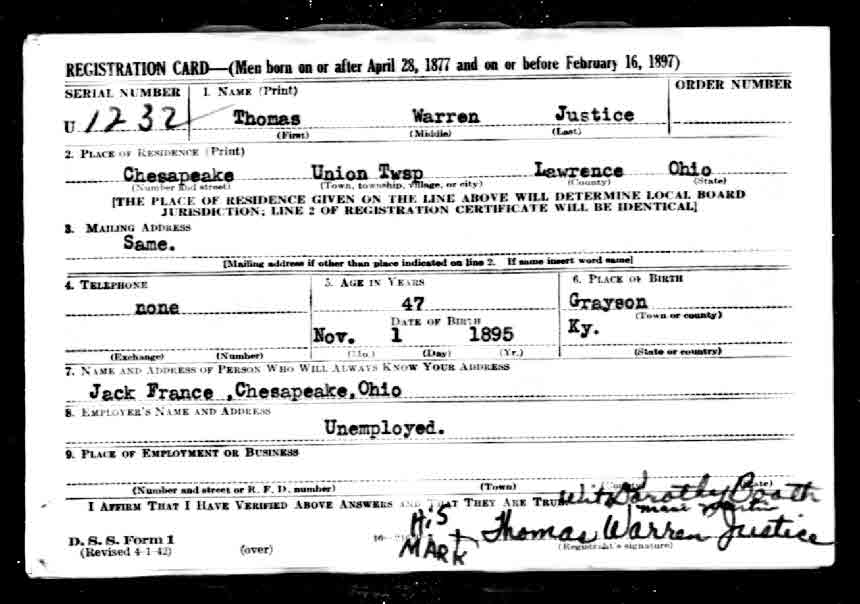 REGISTRATION CARD—(Men born on or after April 28, 1877 and on or before February 16, 1897)
SERIAL NUMBER 1. NAME (Print) ORDER NUMBER
U 1232 Thomas Warren Justice
(First) (Middle) (Last)
2. PLACE OF RESIDENCE (Print)
Chesapeake Union Twsp Lawrence Ohio
(Number and street) (Town, township, village, or city) (County) (State)
[THE PLACE OF RESIDENCE GIVEN ON THE LINE ABOVE WILL DETERMINE LOCAL BOARD
JURISDICTION; LINE 2 OF REGISTRATION CERTIFICATE WILL BE IDENTICAL]
3. MAILING ADDRESS
Same.
[Mailing address if other than place indicated on line 2. If same insert word same]
4. TELEPHONE 5. AGE IN YEARS 6. PLACE OF BIRTH
none 47 Grayson
DATE OF BIRTH (Town or county)
Nov. 1 1895 Ky.
(Exchange) (Number) (Mo.) (Day) (Yr.) (State or country)
7. NAME AND ADDRESS OF PERSON WHO WILL ALWAYS KNOW YOUR ADDRESS
Jack France ,Chesapeake,Ohio
8. EMPLOYER'S NAME AND ADDRESS
Unemployed.
9. PLACE OF EMPLOYMENT OR BUSINESS
(Number and street or R. F. D. number) (Town) (County) (State)
I AFFIRM THAT I HAVE VERIFIED ABOVE ANSWERS AND THAT THEY ARE TRUE. Wit Dorothy Booth
HIS + Thomas Warren Justice
MARK
D. S. S. Form 1
(Revised 4-1-42) (over) (Registrant's signature)